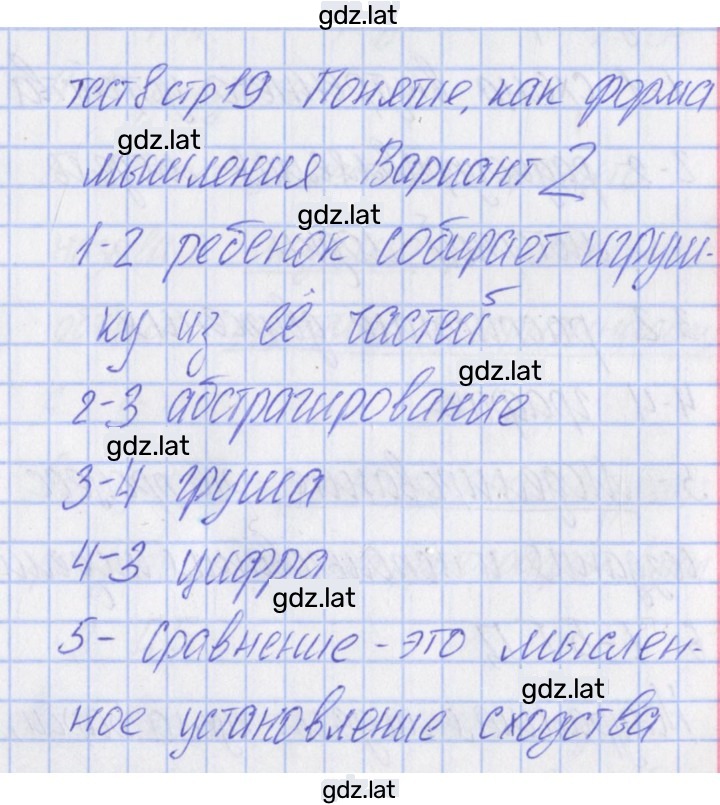 gdz.lat
тест 8 стр 19 Понятие, как форма
gdz.lat
мышления Вариант 2
gdz.lat
1-2 ребенок собирает игруш-
ку из её частей
gdz.lat
2-3 абстрагирование
gdz.lat
3-4 груша
4-3 цифра
gdz.lat
5- Сравнение - это мыслен-
gdz.lat
ное установление сходства
gdz.lat